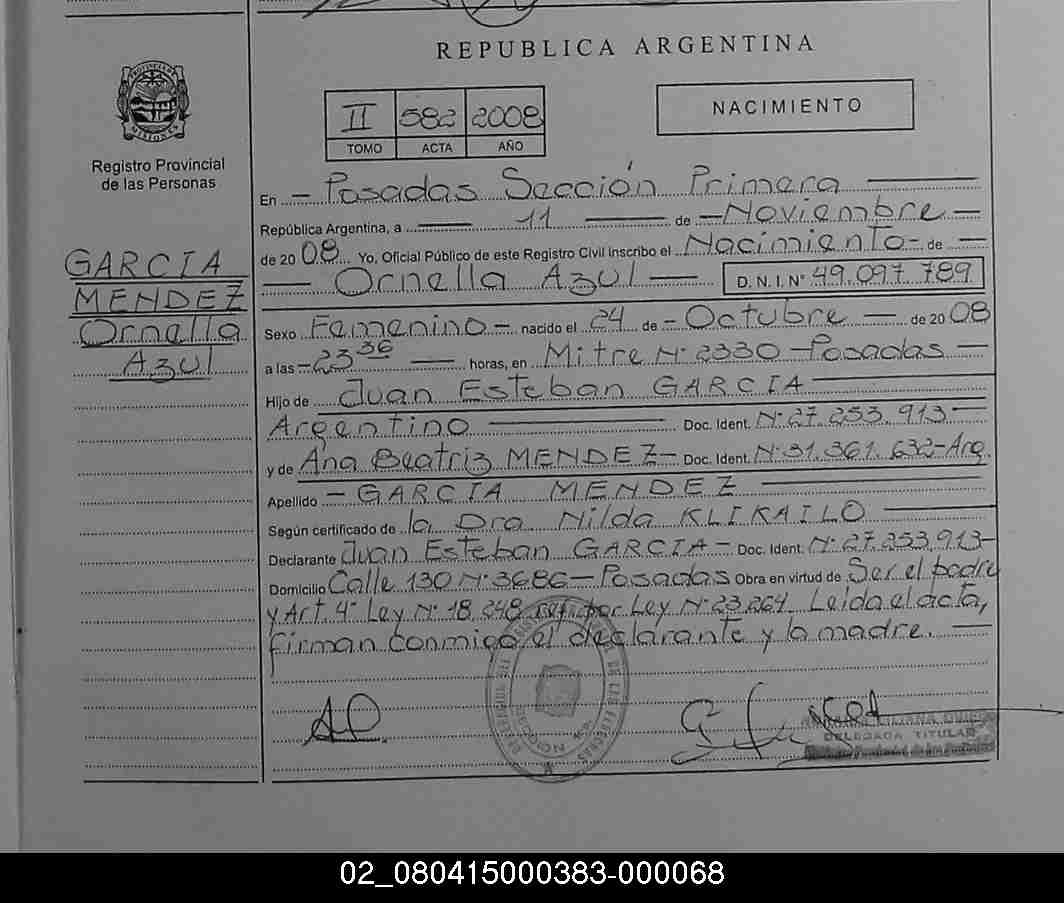 REPUBLICA ARGENTINA
PROVINCIA DE
MISIONES
Registro Provincial
de las Personas
NACIMIENTO
II 582 2008
TOMO ACTA AÑO
GARCIA
MENDEZ
Ornella
Azul
En - Posadas Sección Primera
República Argentina, a 11 de - Noviembre -
de 2008. Yo, Oficial Público de este Registro Civil inscribo el Nacimiento - de -
Ornella Azul D.N.I. Nº 49.097.789
Sexo Femenino - nacido el 24 de - Octubre - de 2008
a las - 23 36 - horas, en Mitre Nº 2330 - Posadas -
Hijo de Juan Esteban GARCIA
Argentino Doc. Ident. Nº 27.253.913 -
y de Ana Beatriz MENDEZ - Doc. Ident. Nº 31.361.632 - Arg.
Apellido - GARCIA MENDEZ
Según certificado de la Dra Nilda KLIKAILO
Declarante Juan Esteban GARCIA - Doc. Ident. Nº 27.253.913 -
Domicilio Calle 130 Nº 3686 - Posadas Obra en virtud de Ser el padre
y Art. 4º Ley Nº 18.248 por Ley Nº 23.264. Leida el acta,
firman conmigo el declarante y la madre. -
LILIANA
DELEGADA TITULAR
02_080415000383-000068